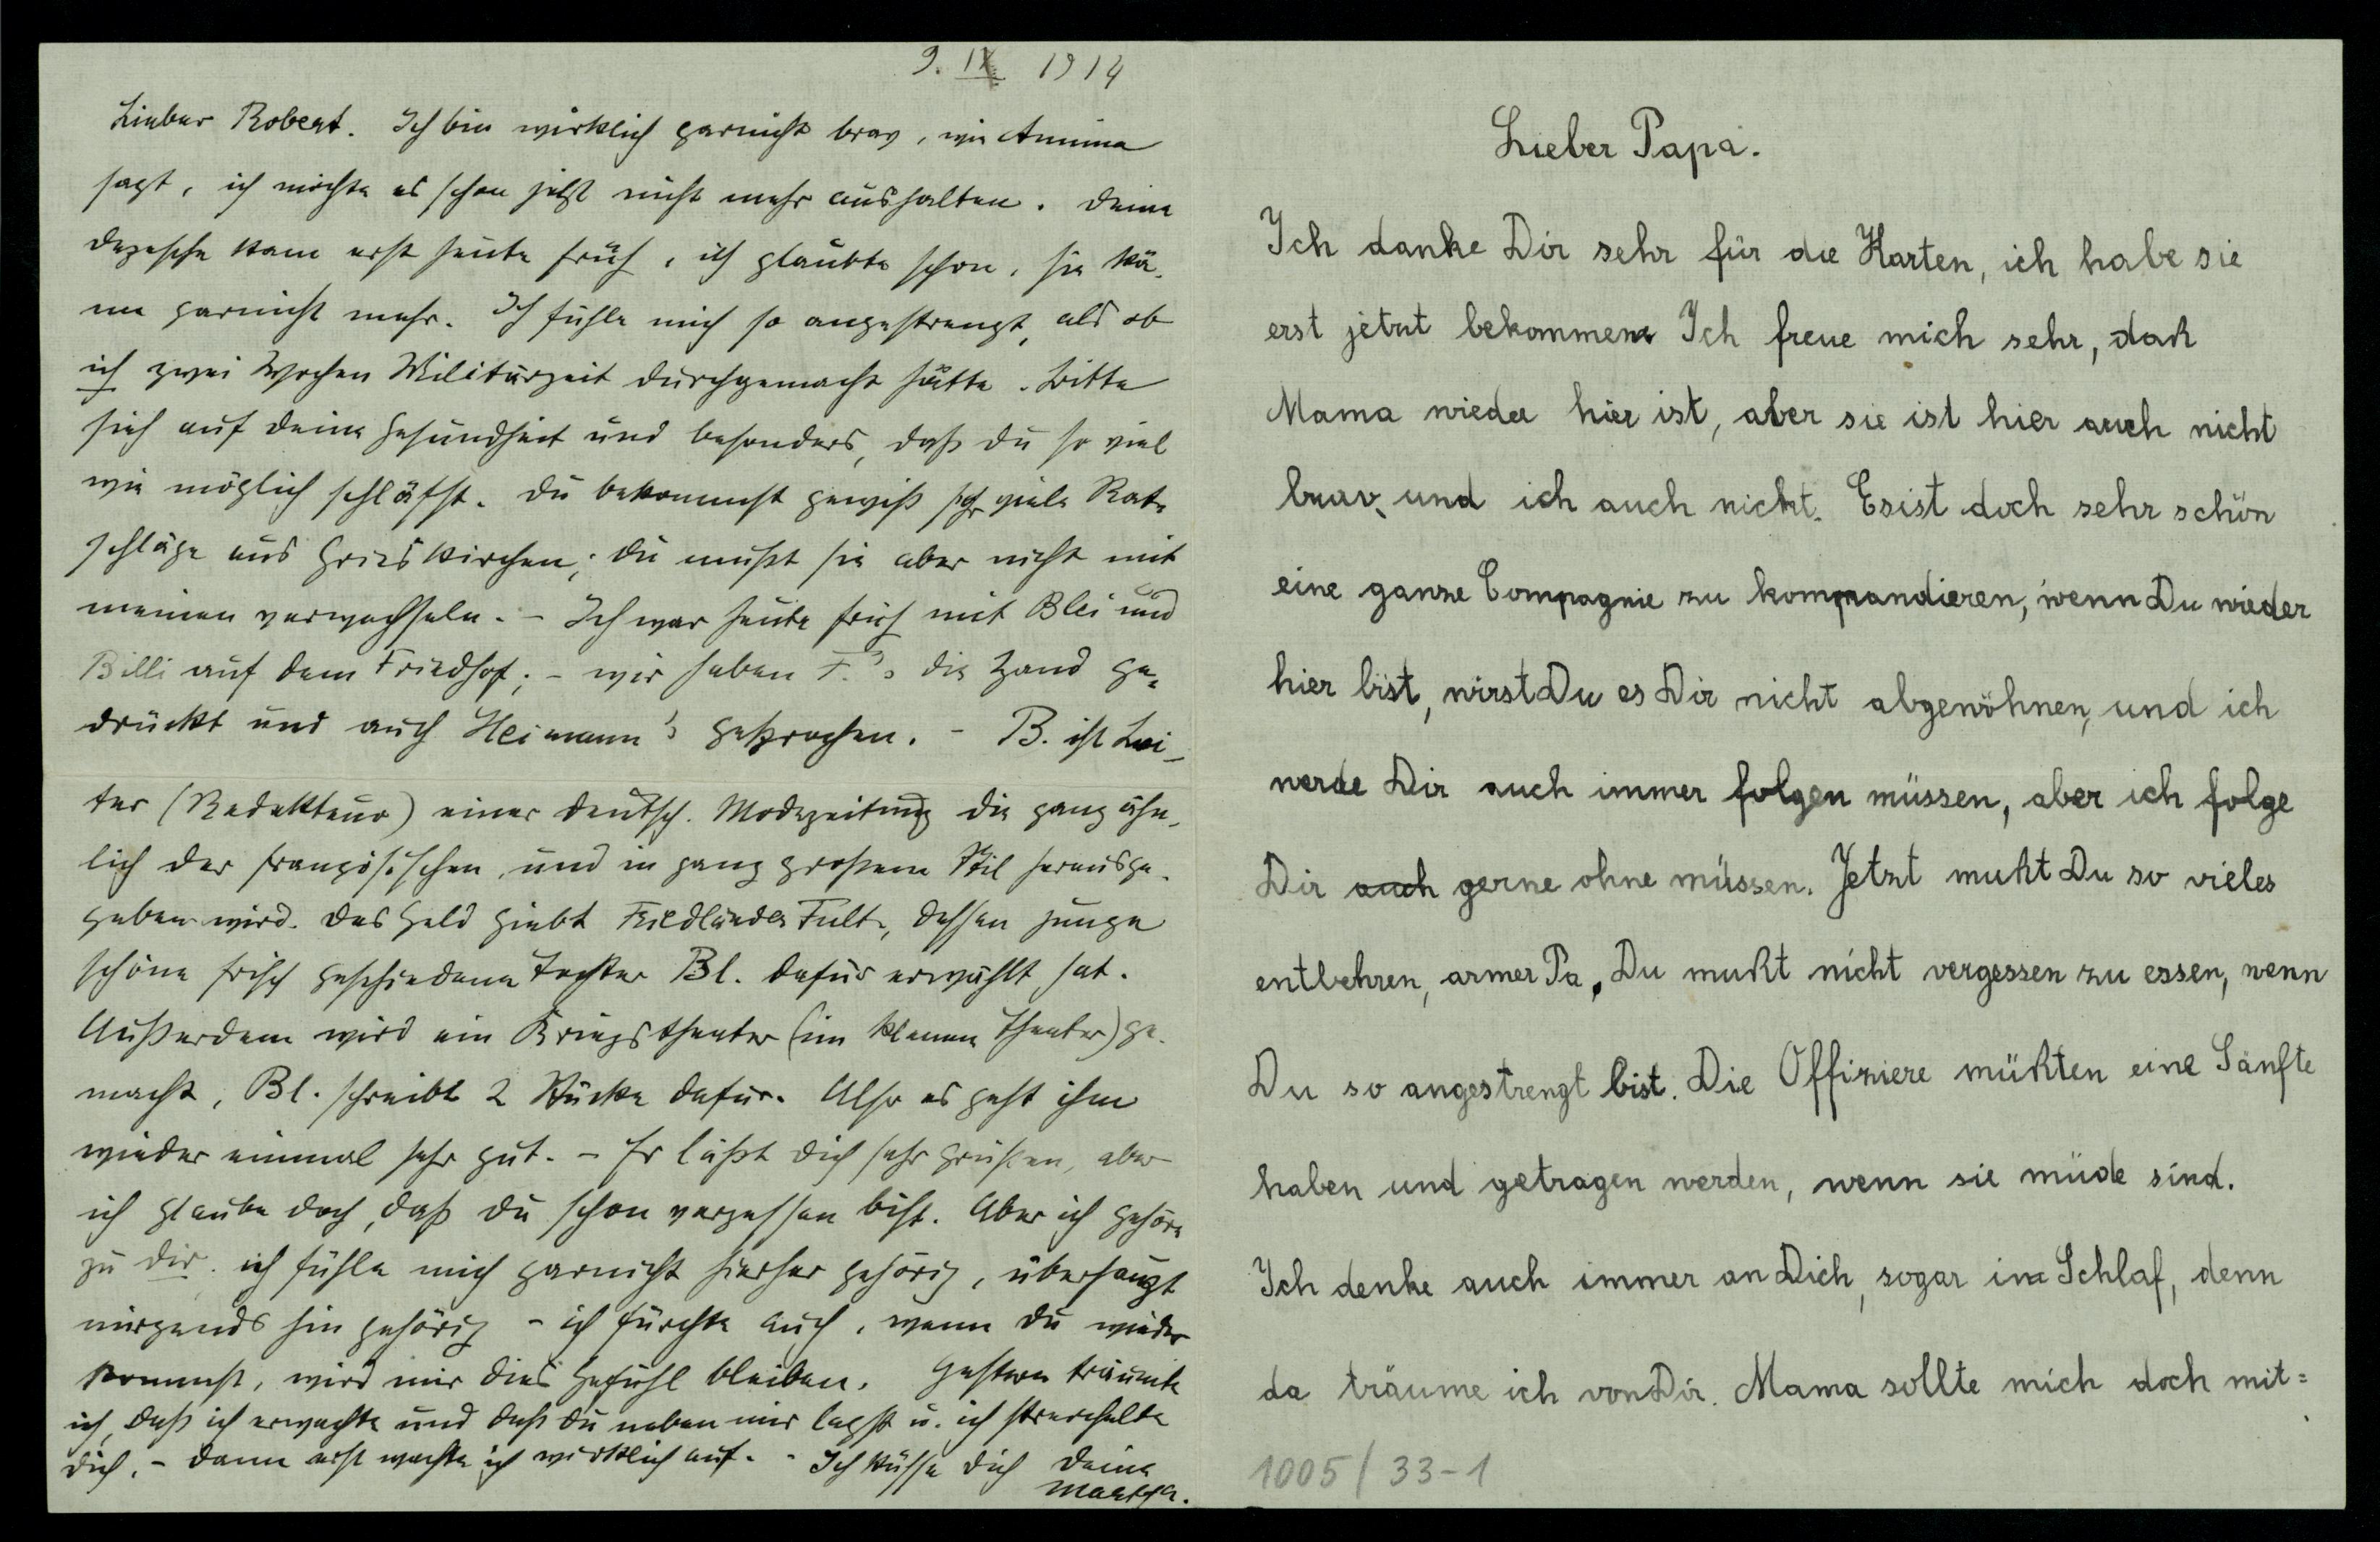 9. IX 1914
Lieber Robert. Ich bin wirklich garnicht brav, wie Annina
sagt, ich möchte es schon jetzt nicht mehr aushalten. Deine
Depesche kam erst heute früh, ich glaubte schon, sie kä-
me garnicht mehr. Ich fühle mich so angestrengt, als ob
ich zwei Wochen Militärzeit durchgemacht hätte. Bitte
sieh auf Deine Gesundheit und besonders, daß Du so viel
wie möglich schläfst. Du bekommst gewiß sehr viele Rat-
schläge aus Grieskirchen; Du mußt sie aber nicht mit
meinen verwechseln. – Ich war heute früh mit Blei und
Billi auf dem Friedhof; – wir haben F.'s die Hand ge-
drückt und auch Heimann's gesprochen. – B. ist Lei-
ter (Redakteur) einer deutsch. Modezeitung die ganz ähn-
lich der französischen, und in ganz großem Stil herausge-
geben wird. Das Geld giebt Friedländer Fult-, dessen junge
schöne frisch geschiedene Tochter Bl. dafür erwählt hat.
Außerdem wird ein Kriegstheater (im kleinen Theater) ge-
macht, Bl. schreibt 2 Stücke dafür. Also es geht ihm
wieder einmal sehr gut. – Er läßt Dich sehr grüßen, aber
ich glaube doch, daß Du schon vergessen bist. Aber ich gehöre
zu Dir. ich fühle mich garnicht hierher gehörig, überhaupt
nirgends hin gehörig – ich fürchte auch, wenn Du wieder
kommst, wird mir dies Gefühl bleiben. Gestern träumte
ich, daß ich erwachte und daß Du neben mir lagst u. ich streichelte
Dich. – dann erst wachte ich wirklich auf. – Ich küsse Dich Deine
Martha.
Lieber Papa.
Ich danke Dir sehr für die Karten, ich habe sie
erst jetzt bekommen. Ich freue mich sehr, daß
Mama wieder hier ist, aber sie ist hier auch nicht
brav, und ich auch nicht. Es ist doch sehr schön
eine ganze Compagnie zu kommandieren, wenn Du wieder
hier bist, wirst Du es Dir nicht abgewöhnen, und ich
werde Dir auch immer folgen müssen, aber ich folge
Dir auch gerne ohne müssen. Jetzt mußt Du so vieles
entbehren, armer Pa, Du mußt nicht vergessen zu essen, wenn
Du so angestrengt bist. Die Offiziere müßten eine Sänfte
haben und getragen werden, wenn sie müde sind.
Ich denke auch immer an Dich, sogar im Schlaf, denn
da träume ich von Dir. Mama sollte mich doch mit=
1005 / 33-1